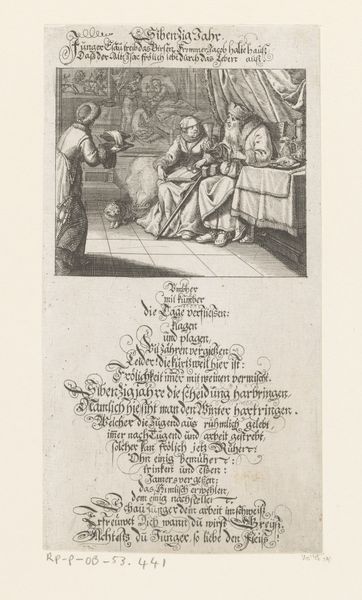 Sibenzig Jahr.
Jünger Esau treib das Birsen, frommer Jacob halte hauß
Daß der Alt Isac frölich lebe durch das Leben auß.
mit
die Tage verfließen:
klagen
und plagen
vil zähren vergießen
Leider! die kurtzweil hier ist:
Frölichkeit imer mit weinen vermischt.
Sibenzig jahre die scheidung harbringen
Nämlich hie siht man den Winter hartringen.
Welcher die Jugend auß rühmlich gelebt
imer nach Tugend und arbeit gestrebt,
solcher kan frölich jetz
Ohn einig bemühen:
trinken und eßen:
Jamers vergeßen:
das Himlisch erwehlen
dem einig nachstellen
Schau Jünger dein arbeit im schweiß
Erfreuwet Dich wann du wirst Greyß
du Junger, so liebe den Fleiß
RP-P-OB-53.441